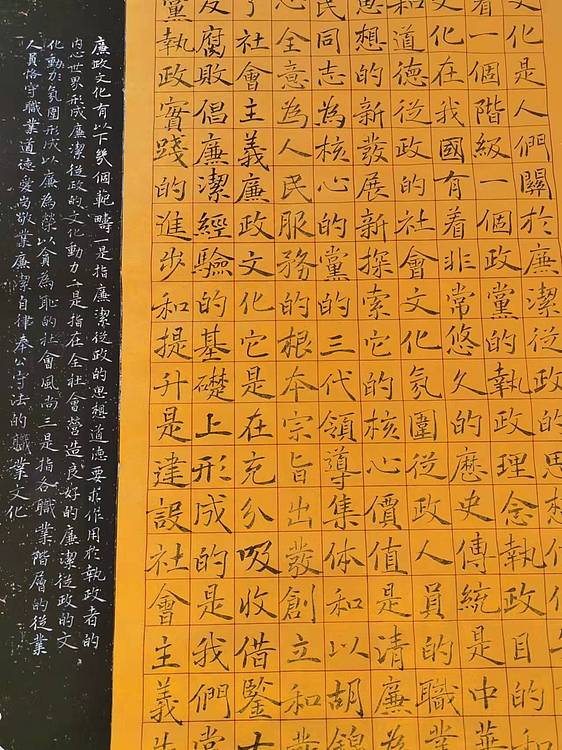 文化是人們關於廉潔從政的思想
看一個階級一個政黨的執政理念執政目的和
化在我國有着非常悠久的歷史傳統是中華
和道德從政的社會文化氛圍從政人員的職業
思想的新發展新探索它的核心價值是清廉為
民同志為核心的黨的三代領導集體和以胡錦
心全意為人民服務的根本宗旨出發創立和
了社會主義廉政文化它是在充分吸收借鑒
反腐敗倡廉潔經驗的基礎上形成的是我們黨
黨執政實踐的進步和提升是建設社會主義
廉政文化有以下幾個範疇一是指廉潔從政的思想道德要求作用於執政者的
內世界形成廉潔從政的文化動力二是指在全社會營造良好的廉潔從政的文
化動力氛圍形成以廉為榮以貪為恥的社會風尚三是指各職業階層的從業
人員恪守職業道德愛尚敬業廉潔自律奉公守法的職業文化